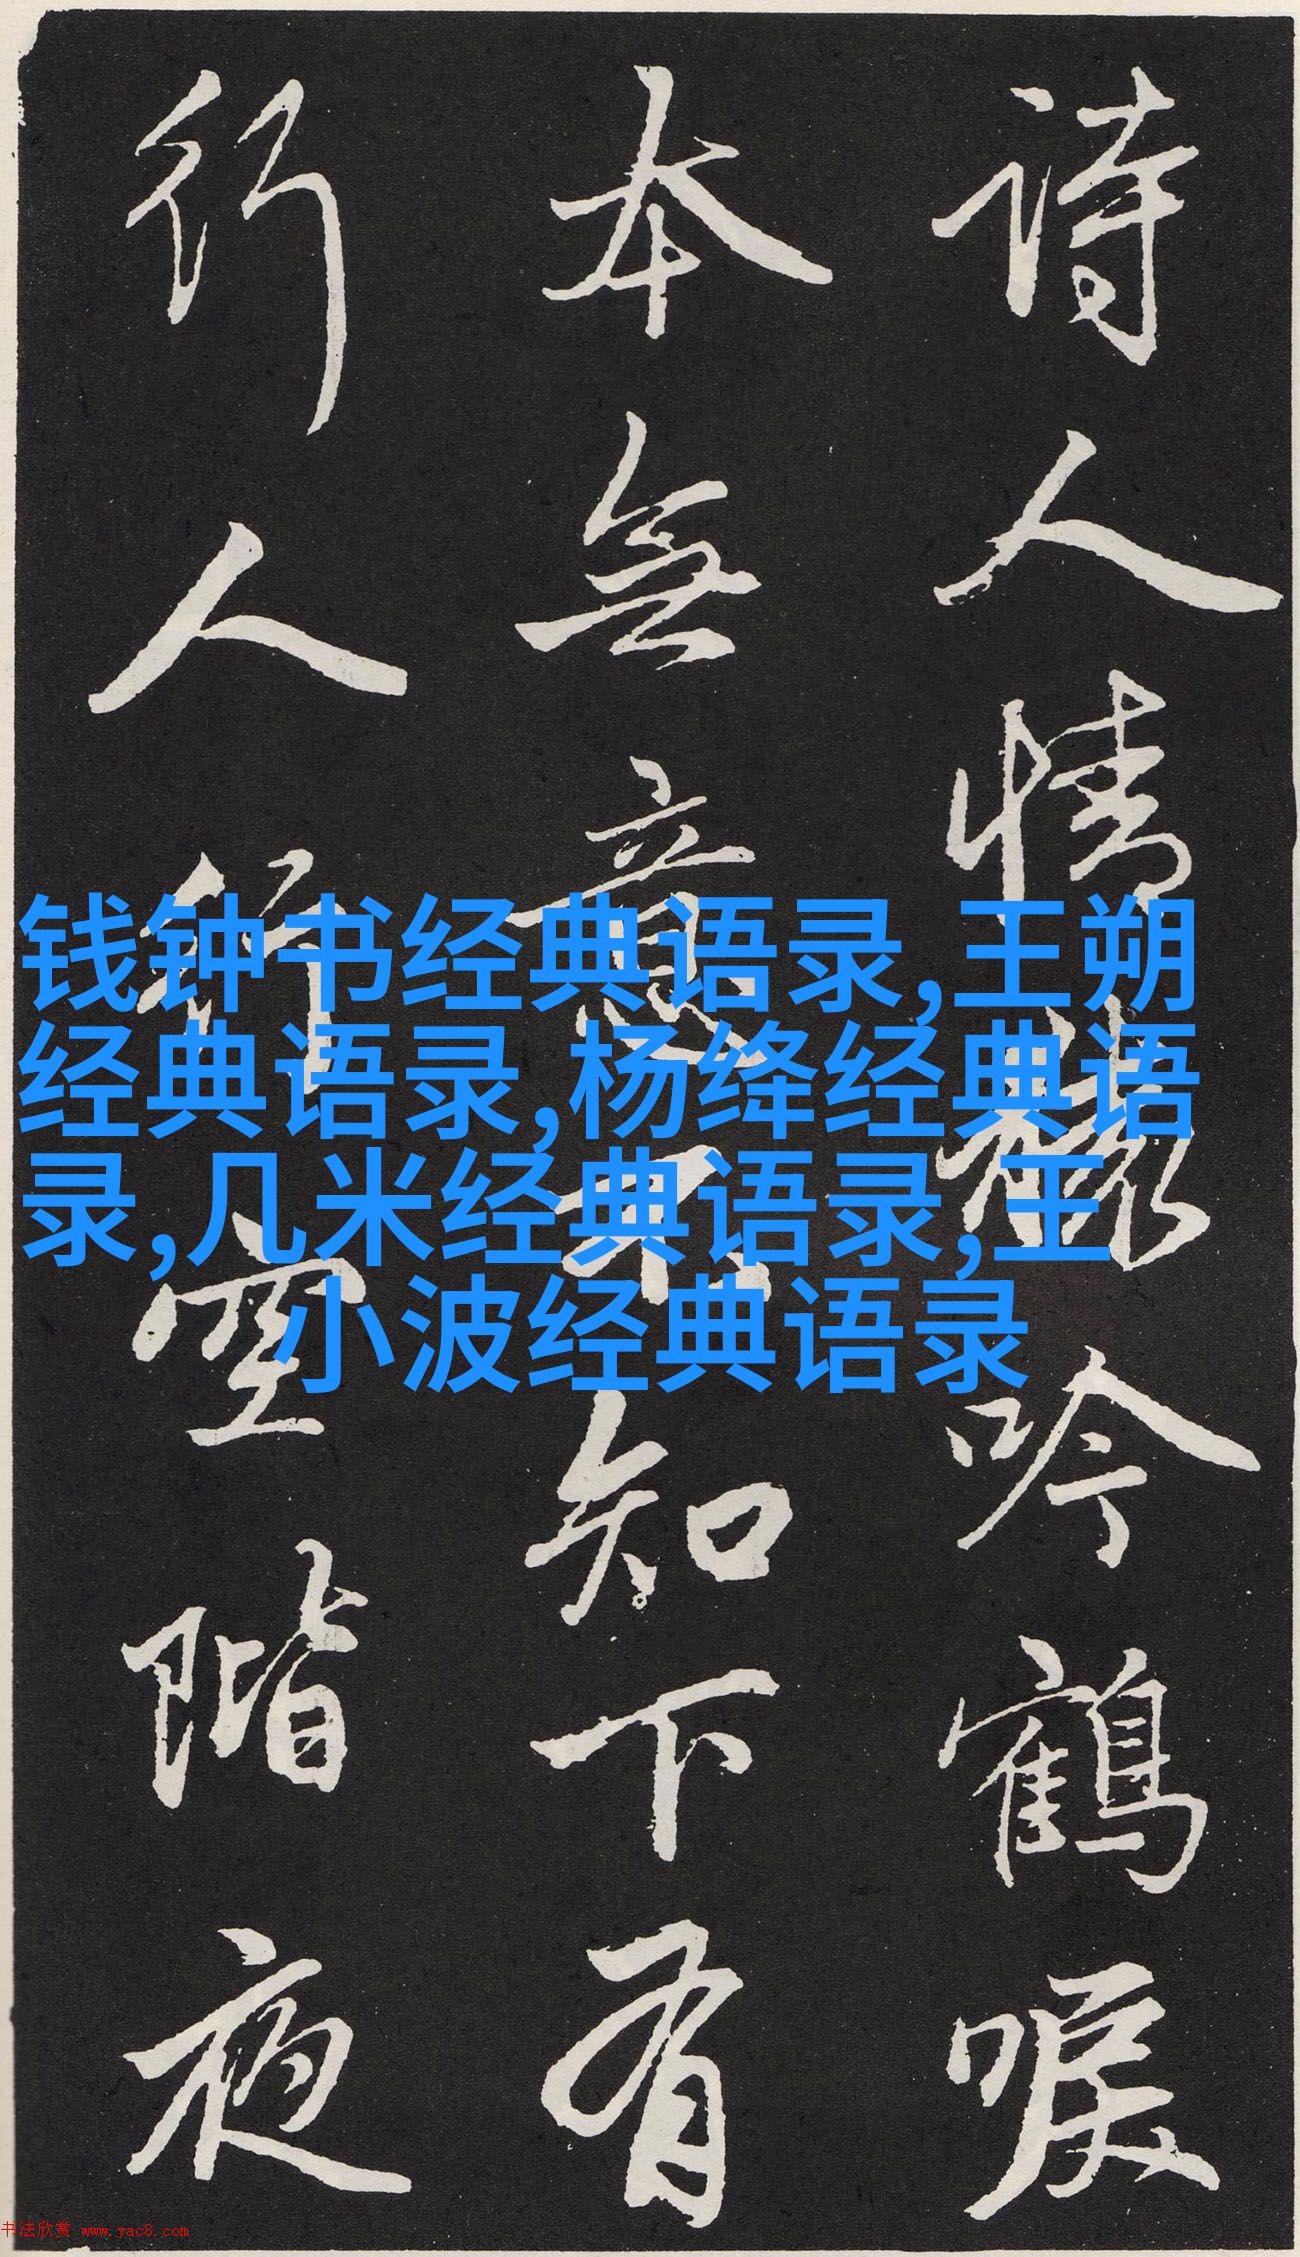 诗人情携吟鹤唳
本無意不知下有
行人行空階夜
钱钟书经典语录,王朔
经典语录,杨绛经典语
录,几米经典语录,王
小波经典语录
书法欣赏 www.yac8.com